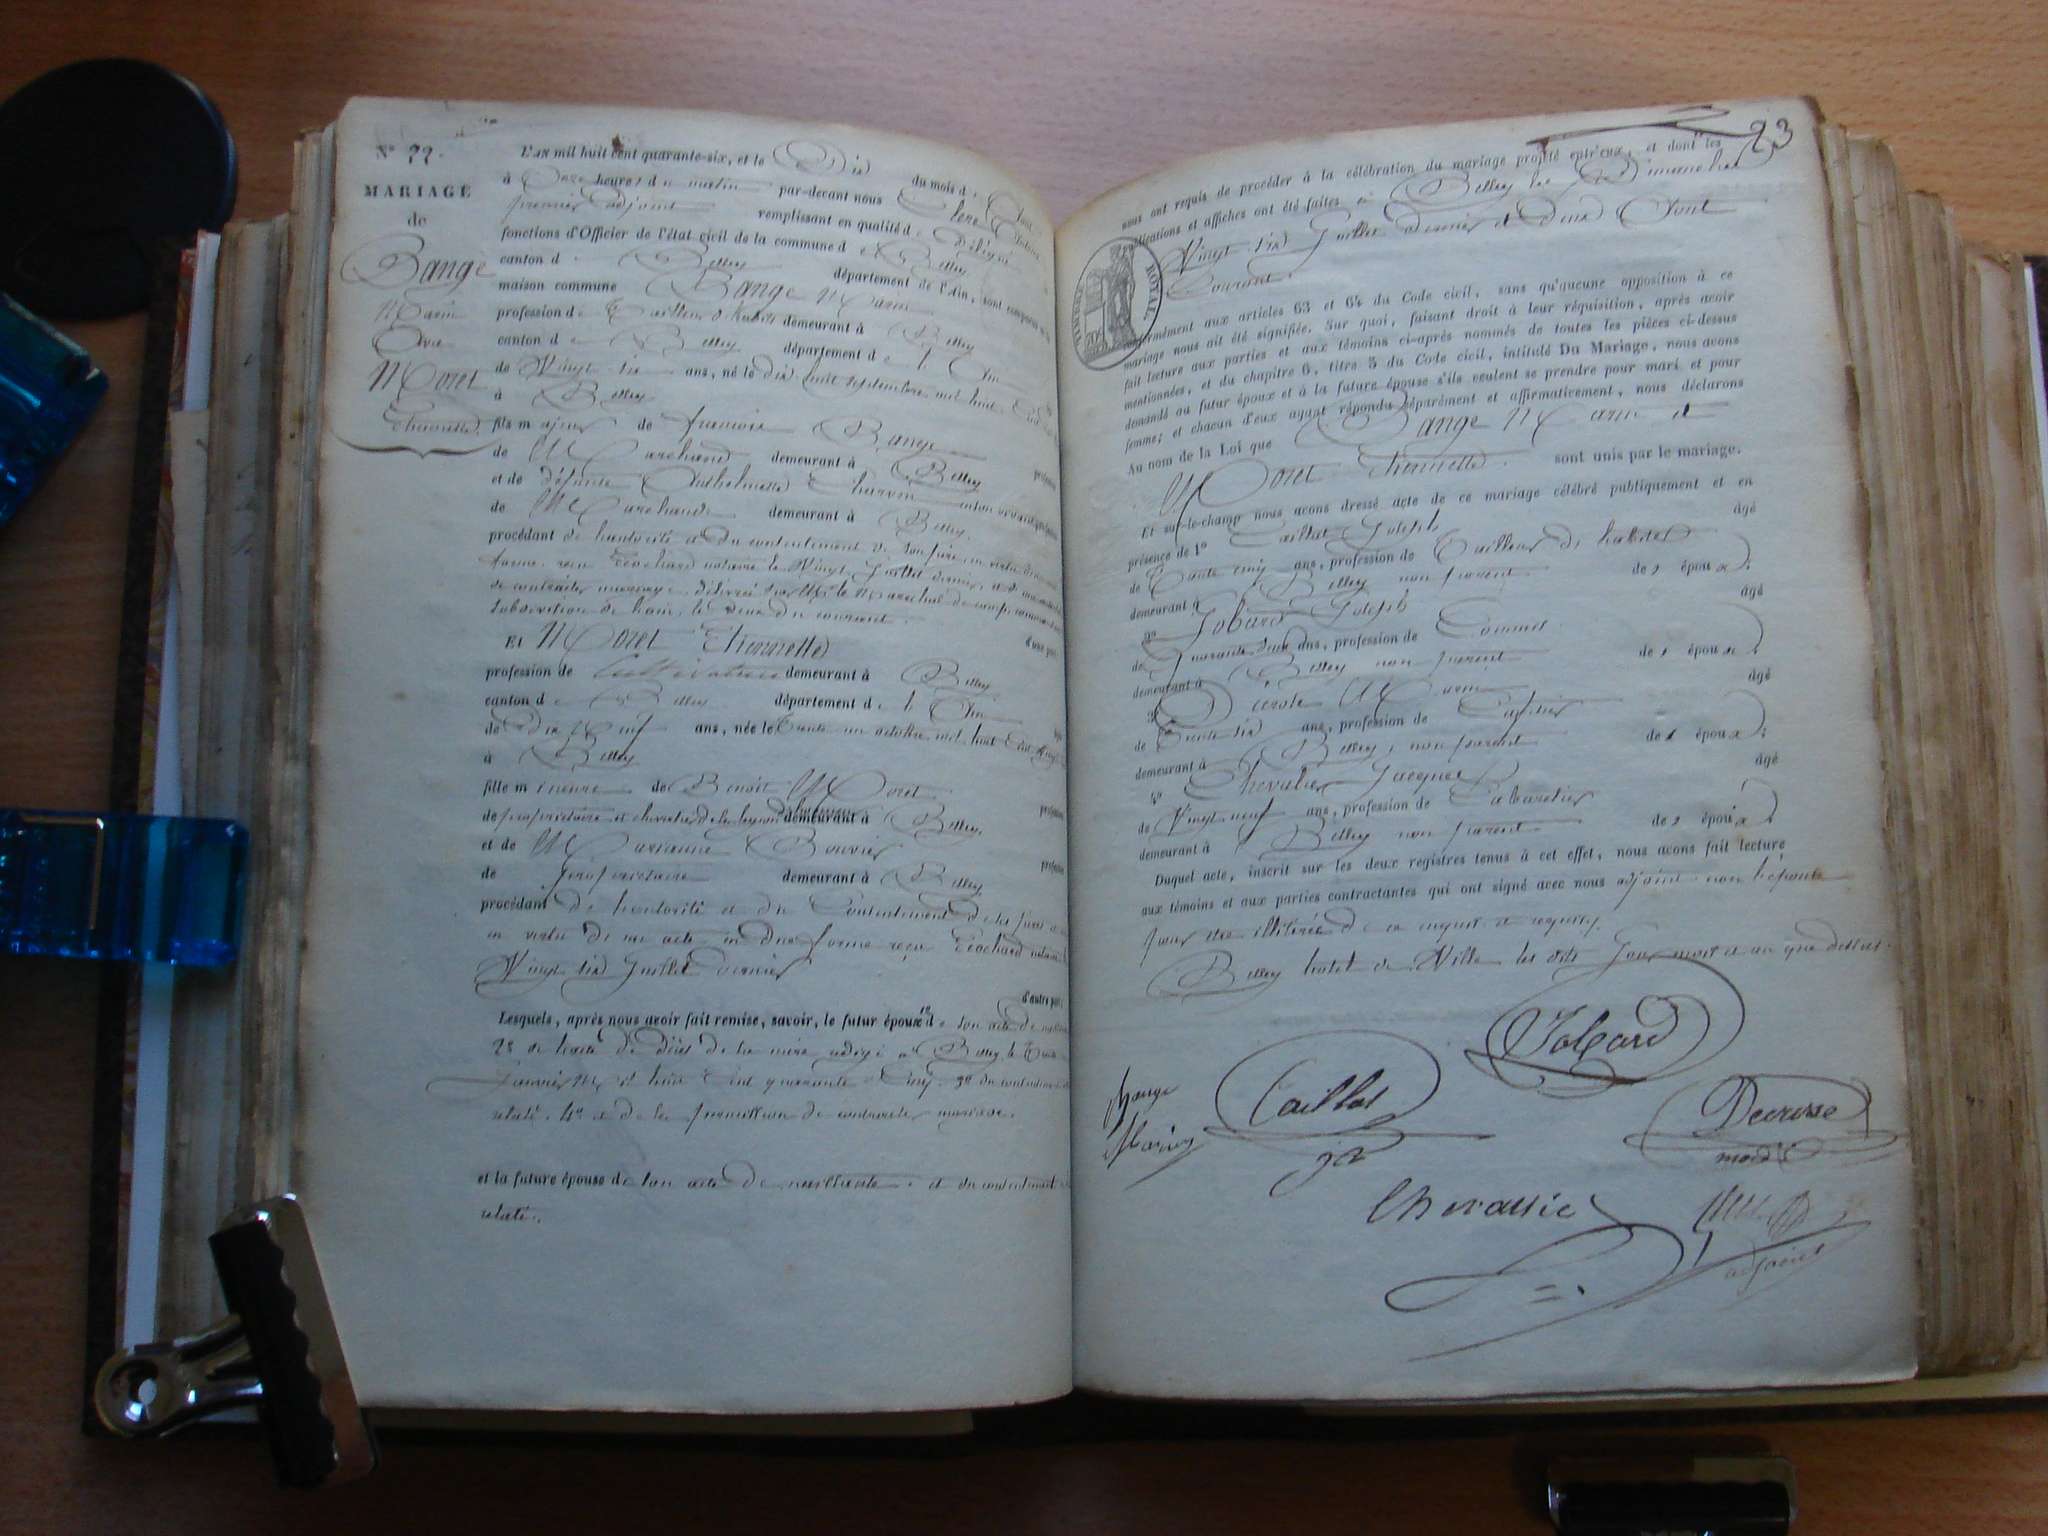 N° 22.
MARIAGE
de
Bange
Marin
Avec
Moret
Thiennette.
L'AN mil huit cent quarante-six, et le Dix du mois d'Aout
à Onze heures du matin par-devant nous
premier adjoint remplissant en qualité de Délégué
fonctions d'Officier de l'état civil de la commune de Belley
canton de Belley département de l'Ain, sont comparus
maison commune Bange Marin
profession de Tailleur d'habits demeurant à Belley
canton de Belley département de l'Ain
de Vingt six ans, né le dix huit septembre mil huit Cent
à Belley
fils majeur de francois Bange
de Marchand demeurant à Belley
et de défunte Anthelmette
de Marchande demeurant à Belley
procédant de l'autorité et du consentement de son père, en vertu
forme reçu Trochard notaire le Vingt Juillet dernier, et
de contracter mariage délivrée par Mr. le Maréchal de camp
Subdivision de l'ain, le deux du courant.
Et Moret Thiennette d'une part;
profession de Cultivatrice demeurant à Belley
canton de Belley département de l'Ain
de Dix Neuf ans, née le Trente un octobre mil huit Cent Vingt
à Belley
fille mineure de Benoit Moret profession
de propriétaire et chevalier de la légion d'honneur demeurant à Belley
et de Marianne Bouvier profession
de propriétaire demeurant à Belley
procédant de l'autorité et du Consentement de ses père et
en vertu de un acte en due forme reçu Trochard notaire le
Vingt six Juillet dernier
d'autre part;
Lesquels, après nous avoir fait remise, savoir, le futur époux 1° de son acte de
2° de l'acte de décès de sa mère rédigé à Belley le
Janvier Mil huit Cent quarante Cinq. 3° du consentement
relaté. 4° et de la permission de contracter mariage.
et la future épouse de son acte de naissance et du consentement
relaté.
23
nous ont requis de procéder à la célébration du mariage projeté entr'eux, et dont les
publications et affiches ont été faites à Belley les Dimanches
Vingt six Juillet dernier et deux Aout
Courant.
TIMBRE ROYAL
conformément aux articles 63 et 64 du Code civil, sans qu'aucune opposition à ce
mariage nous ait été signifiée. Sur quoi, faisant droit à leur réquisition, après avoir
fait lecture aux parties et aux témoins ci-après nommés de toutes les pièces ci-dessus
mentionnées, et du chapitre 6, titre 5 du Code civil, intitulé Du Mariage, nous avons
demandé au futur époux et à la future épouse s'ils veulent se prendre pour mari et pour
femme; et chacun d'eux ayant répondu séparément et affirmativement, nous déclarons
Au nom de la Loi que Bange Marin et
Moret Thiennette sont unis par le mariage.
Et sur-le-champ nous avons dressé acte de ce mariage célébré publiquement et en
présence de 1° Caillat Joseph âgé
de Trente cinq ans, profession de Tailleur d'habits
demeurant à Belley non parent de s époux;
2° Jobard Joseph âgé
de Quarante deux ans, profession de Commis
demeurant à Belley non parent de s époux;
3° Marin âgé
de Trente six ans, profession de
demeurant à Belley, non parent de s époux;
4° Chevalier Jacques âgé
de Vingt neuf ans, profession de Cabaretier
demeurant à Belley non parent de s époux;
Duquel acte, inscrit sur les deux registres tenus à cet effet, nous avons fait lecture
aux témoins et aux parties contractantes qui ont signé avec nous adjoint non l'épouse
pour être illitérée de ce enquise et requise.
Belley hotel de Ville les dits Jour, mois et an que dessus.
Jobard
Bange
Marin
Caillat
Decrose